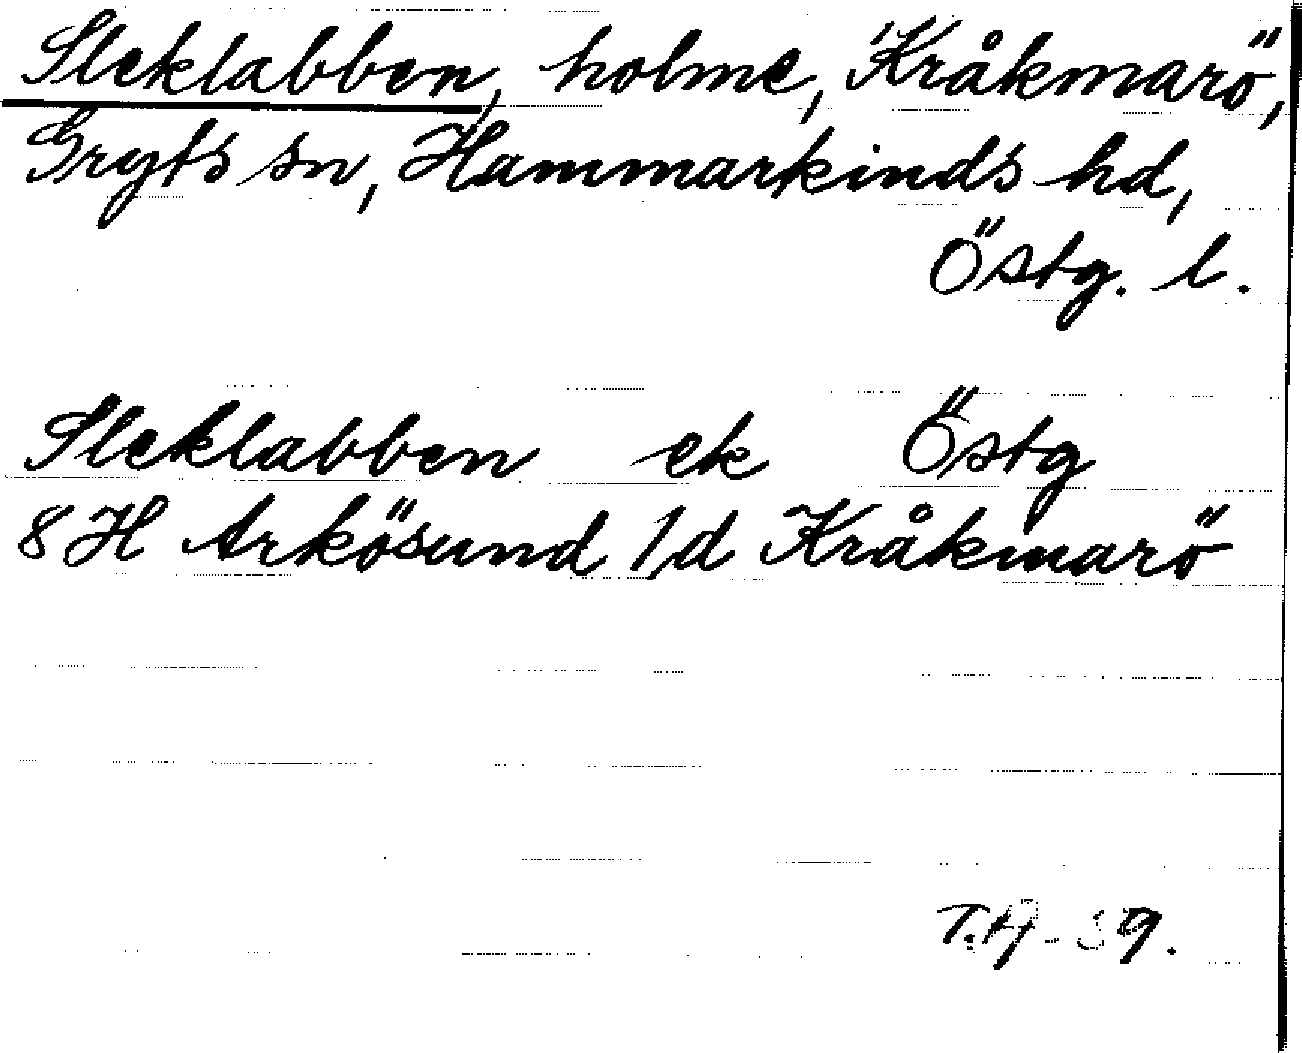 Sleklabben, holme, Kråkmarö,
Gryts sn, Hammarkinds hd,
Östg. l.
Sleklabben ek Östg
8 H Arkösund 1/d Kråkmarö